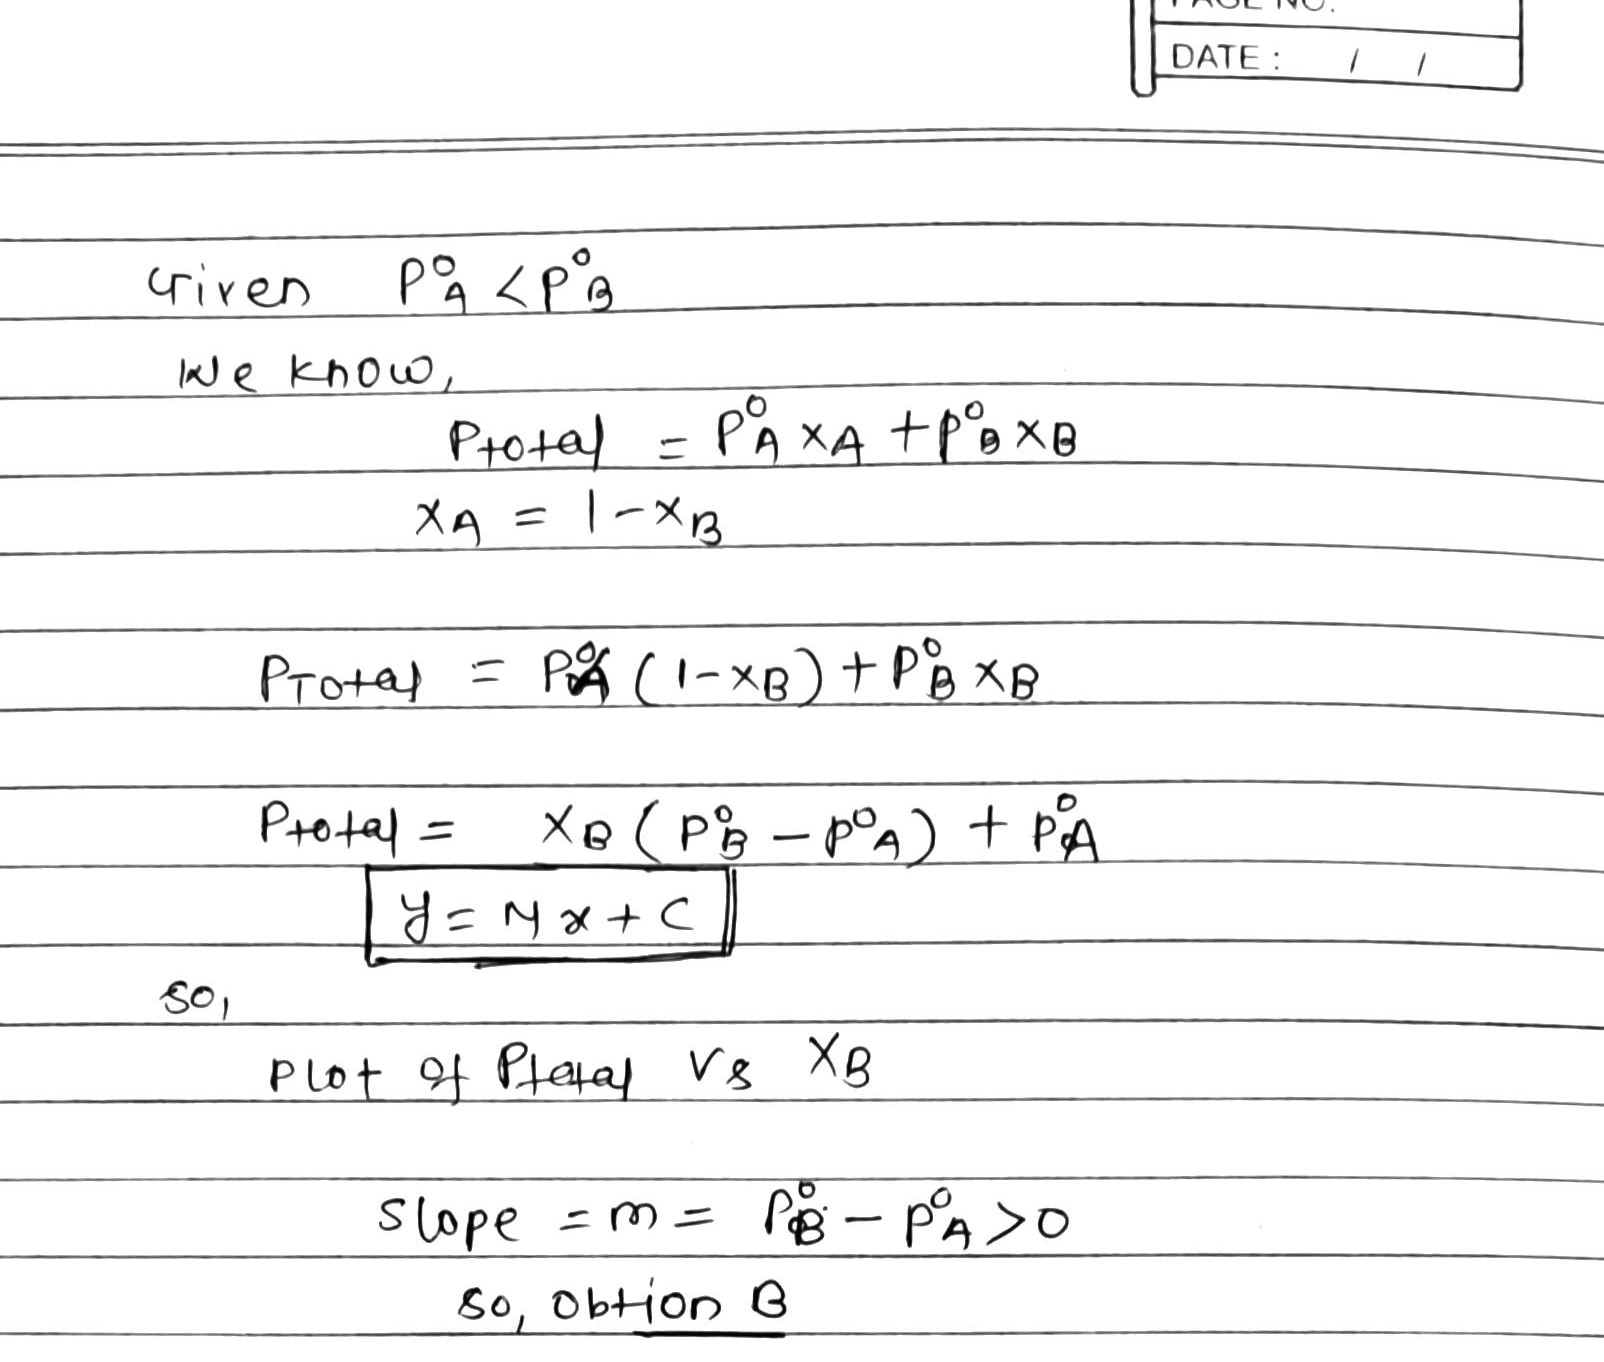 PAGE NO.
DATE : / /
Given P°A < P°B
We know,
Ptotal = P°A XA + P°B XB
XA = 1 - XB
PTotal = P°A (1-XB) + P°B XB
Ptotal = XB (P°B - P°A) + P°A
y = Mx + C
so,
Plot of Ptotal Vs XB
Slope = m = P°B - P°A > 0
So, Obtion B